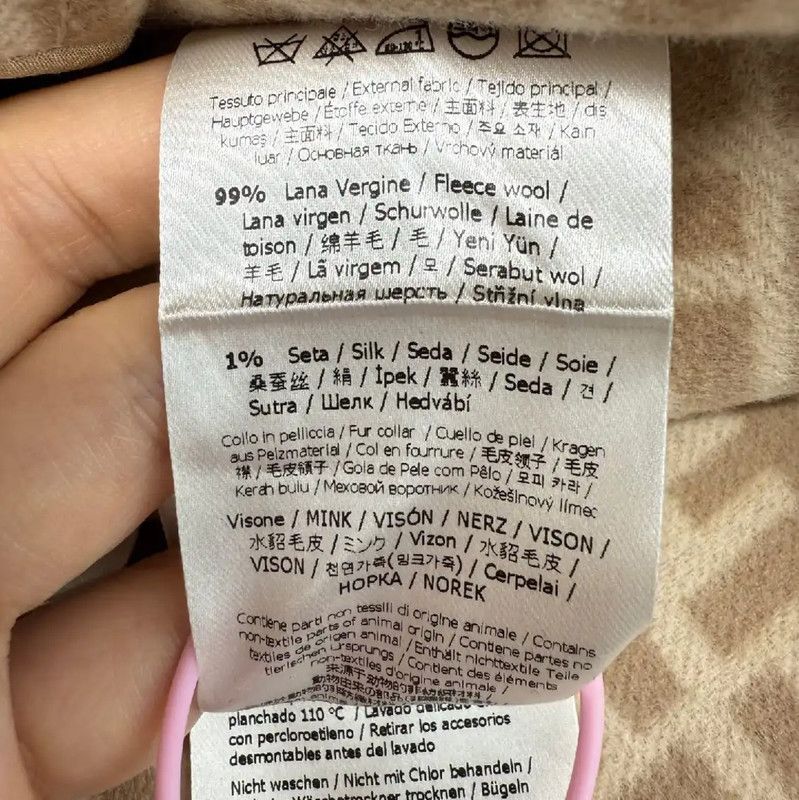 Tessuto principale / External fabric / Tejido principal /
Hauptgewebe / Étoffe externe / 主面料 / 表生地 / dış
kumaş / 主面料 / Tecido Externo / 주요 소재 / Kain
luar / Основная ткань / Vrchový materiál
99% Lana Vergine / Fleece wool /
Lana virgen / Schurwolle / Laine de
toison / 绵羊毛 / 毛 / Yeni Yün /
羊毛 / Lã virgem / 모 / Serabut wol /
Натуральная шерсть / Střižní vlna
1% Seta / Silk / Seda / Seide / Soie /
桑蚕丝 / 絹 / İpek / 蠶絲 / Seda / 견 /
Sutra / Шелк / Hedvábí
Collo in pelliccia / Fur collar / Cuello de piel / Kragen
aus Pelzmaterial / Col en fourrure / 毛皮领子 / 毛皮
襟 / 毛皮領子 / Gola de Pele com Pêlo / 모피 카라 /
Kerah bulu / Меховой воротник / Kožešinový límec
Visone / MINK / VISÓN / NERZ / VISON /
水貂毛皮 / ミンク / Vizon / 水貂毛皮 /
VISON / 천연가죽(밍크가죽) / Cerpelai /
НОРКА / NOREK
Contiene parti non tessili di origine animale / Contains
non-textile parts of animal origin / Contiene partes no
textiles de origen animal / Enthält nichttextile Teile
tierischen Ursprungs / Contient des éléments
non-textiles d'origine animale /
planchado 110 °C / Lavado delicado
con percloroetileno / Retirar los accesorios
desmontables antes del lavado
Nicht waschen / Nicht mit Chlor behandeln /
trocknen / Bügeln